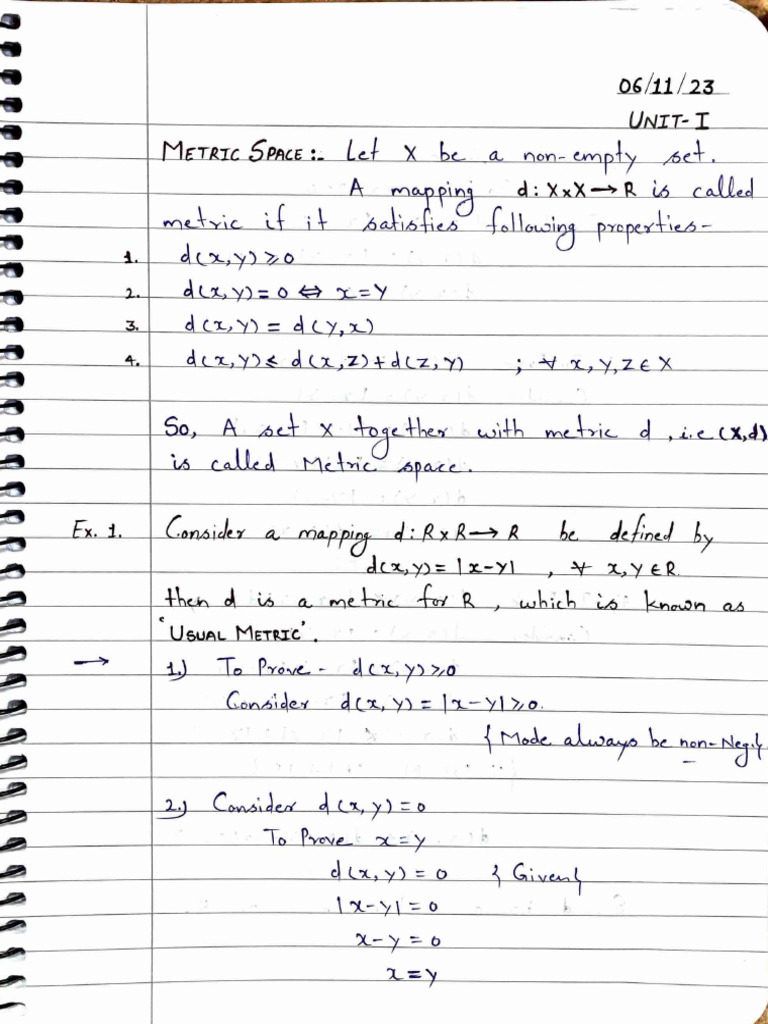 06/11/23
UNIT-I
METRIC SPACE:- Let X be a non-empty set.
A mapping d: X×X→R is called
metric if it satisfies following properties-
1. d(x,y)≥0
2. d(x,y)=0 ⇔ x=y
3. d(x,y) = d(y,x)
4. d(x,y)≤ d(x,z)+d(z,y) ; ∀ x,y,z∈X
So, A set X together with metric d, i.e (X,d)
is called Metric space.
Ex. 1. Consider a mapping d: R×R→R be defined by
d(x,y)= |x-y| , ∀ x,y∈R.
then d is a metric for R, which is known as
'USUAL METRIC'.
→ 1.) To Prove - d(x,y)≥0
Consider d(x,y)=|x-y|≥0.
{Mode always be non-Neg.}
2.) Consider d(x,y)=0
To Prove x=y
d(x,y)=0 {Given}
|x-y|=0
x-y=0
x=y